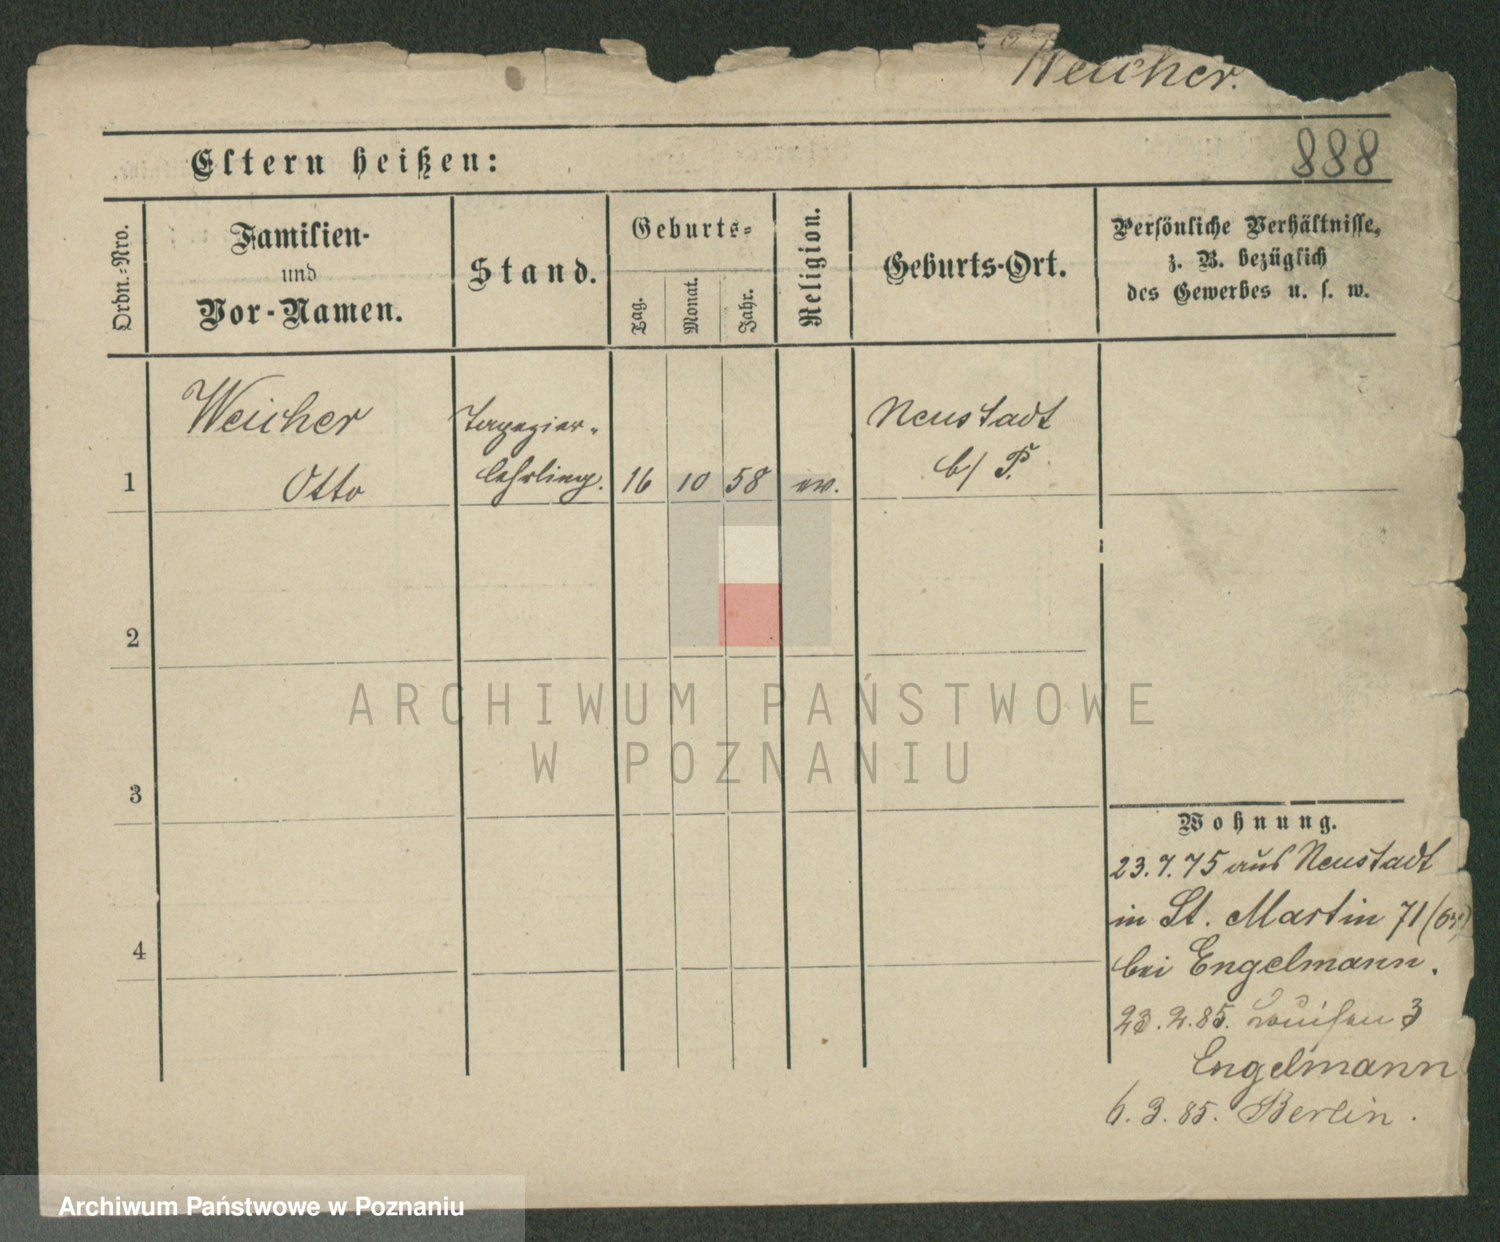 Weicher.
888
Eltern heißen:
Ordn.-Nro.
Familien-
und
Vor-Namen.
Stand.
Geburts-
Tag.
Monat.
Jahr.
Religion.
Geburts-Ort.
Persönliche Verhältnisse,
z. B. bezüglich
des Gewerbes u. s. w.
1
Weicher
Otto
Tapezier-
lehrling.
16
10
58
ev.
Neustadt
b/ P.
2
3
4
ARCHIWUM PAŃSTWOWE
W POZNANIU
Wohnung.
23.7.75 aus Neustadt
in St. Martin 71
bei Engelmann.
23.2.85. Louisen 3
Engelmann
6.3.85. Berlin.
Archiwum Państwowe w Poznaniu